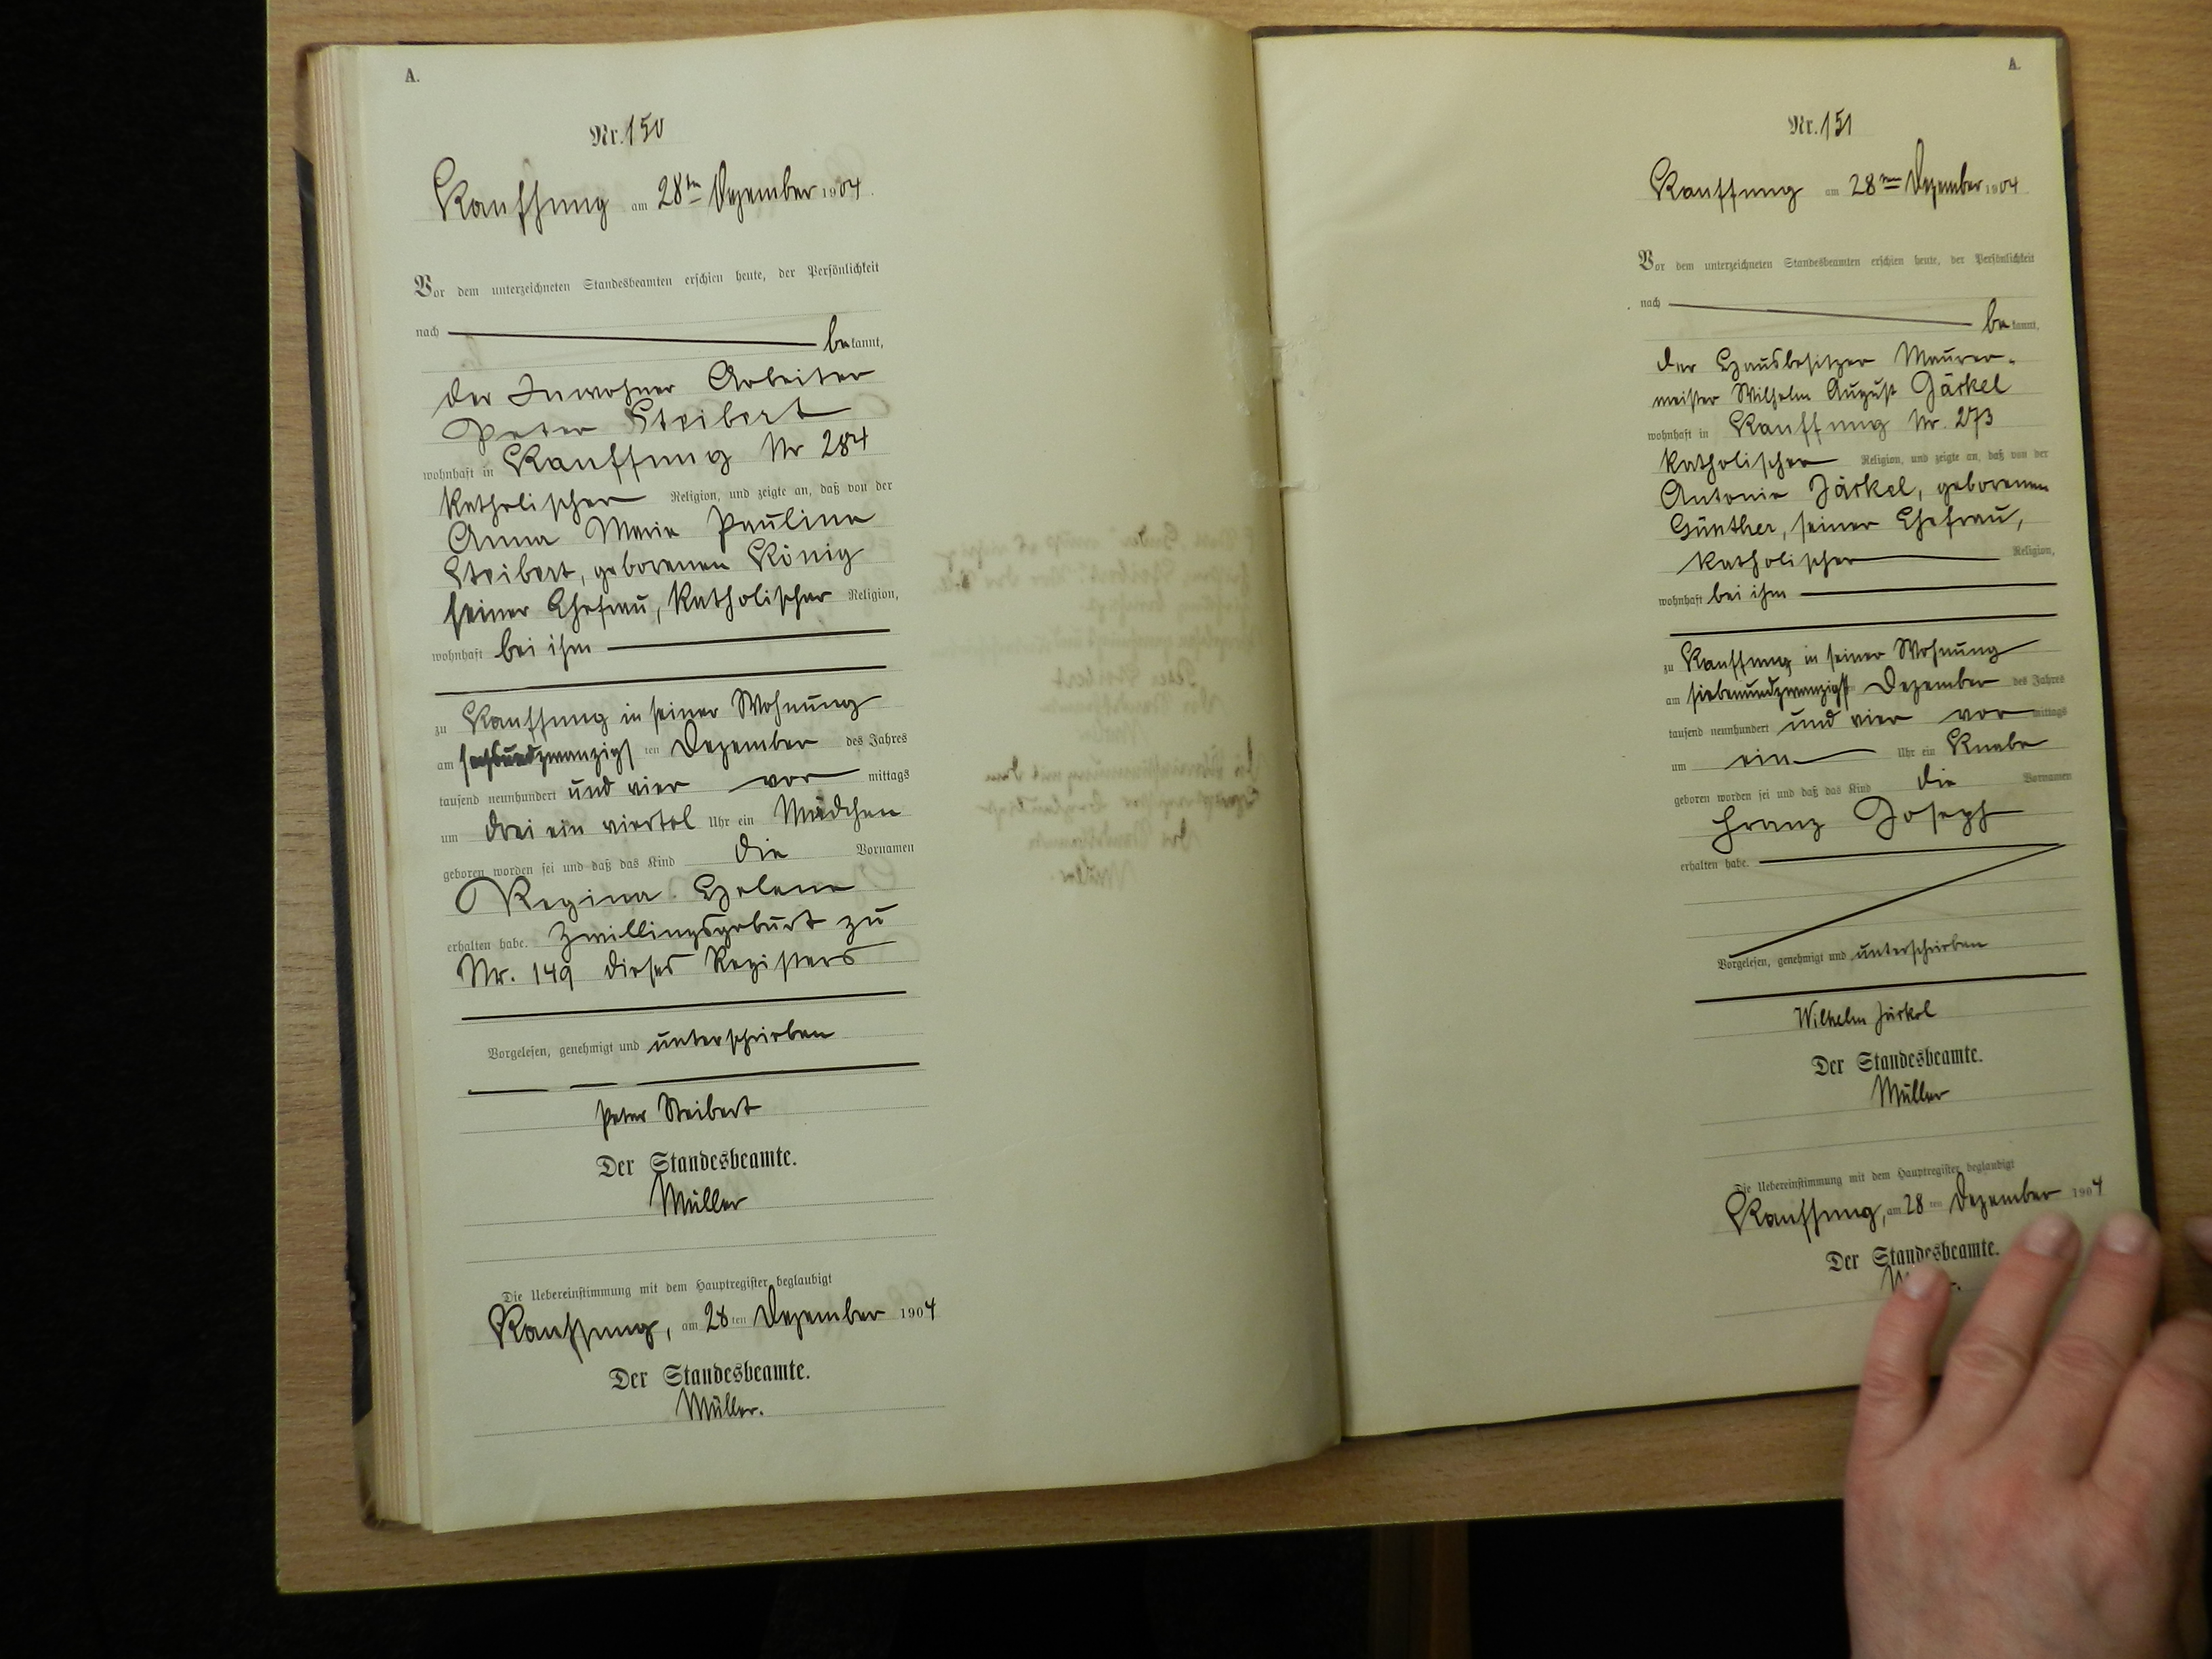 A.
Nr. 150
Kauffung am 28ten Dezember 1904.
Vor dem unterzeichneten Standesbeamten erschien heute, der Persönlichkeit
nach bekannt,
der Inwohner Arbeiter
Peter Steibert
wohnhaft in Kauffung Nr 284
katholischer Religion, und zeigte an, daß von der
Anna Maria Paulina
Steibert, geborenen König
seiner Ehefrau, katholischer Religion,
wohnhaft bei ihm
zu Kauffung in seiner Wohnung
am sechsundzwanzigsten Dezember des Jahres
tausend neunhundert und vier vormittags
um drei ein viertel Uhr ein Mädchen
geboren worden sei und daß das Kind die Vornamen
Regina Helene
erhalten habe. Zwillingsgeburt zu
Nr. 149 dieses Registers
Vorgelesen, genehmigt und unterschrieben
Peter Steibert
Der Standesbeamte.
Müller
Die Uebereinstimmung mit dem Hauptregister beglaubigt
Kauffung, am 28ten Dezember 1904
Der Standesbeamte.
Müller.
A.
Nr. 151
Kauffung am 28ten Dezember 1904
Vor dem unterzeichneten Standesbeamten erschien heute, der Persönlichkeit
nach bekannt,
der Hausbesitzer Maurer-
meister Wilhelm August Järkel
wohnhaft in Kauffung Nr. 273
katholischer Religion, und zeigte an, daß von der
Antonie Järkel, geborenen
Günther, seiner Ehefrau,
katholischer Religion,
wohnhaft bei ihm
zu Kauffung in seiner Wohnung
am siebenundzwanzigsten Dezember des Jahres
tausend neunhundert und vier vormittags
um ein Uhr ein Knabe
geboren worden sei und daß das Kind die Vornamen
Franz Joseph
erhalten habe.
Vorgelesen, genehmigt und unterschrieben
Wilhelm Järkel
Der Standesbeamte.
Müller
Die Uebereinstimmung mit dem Hauptregister beglaubigt
Kauffung, am 28ten Dezember 1904
Der Standesbeamte.